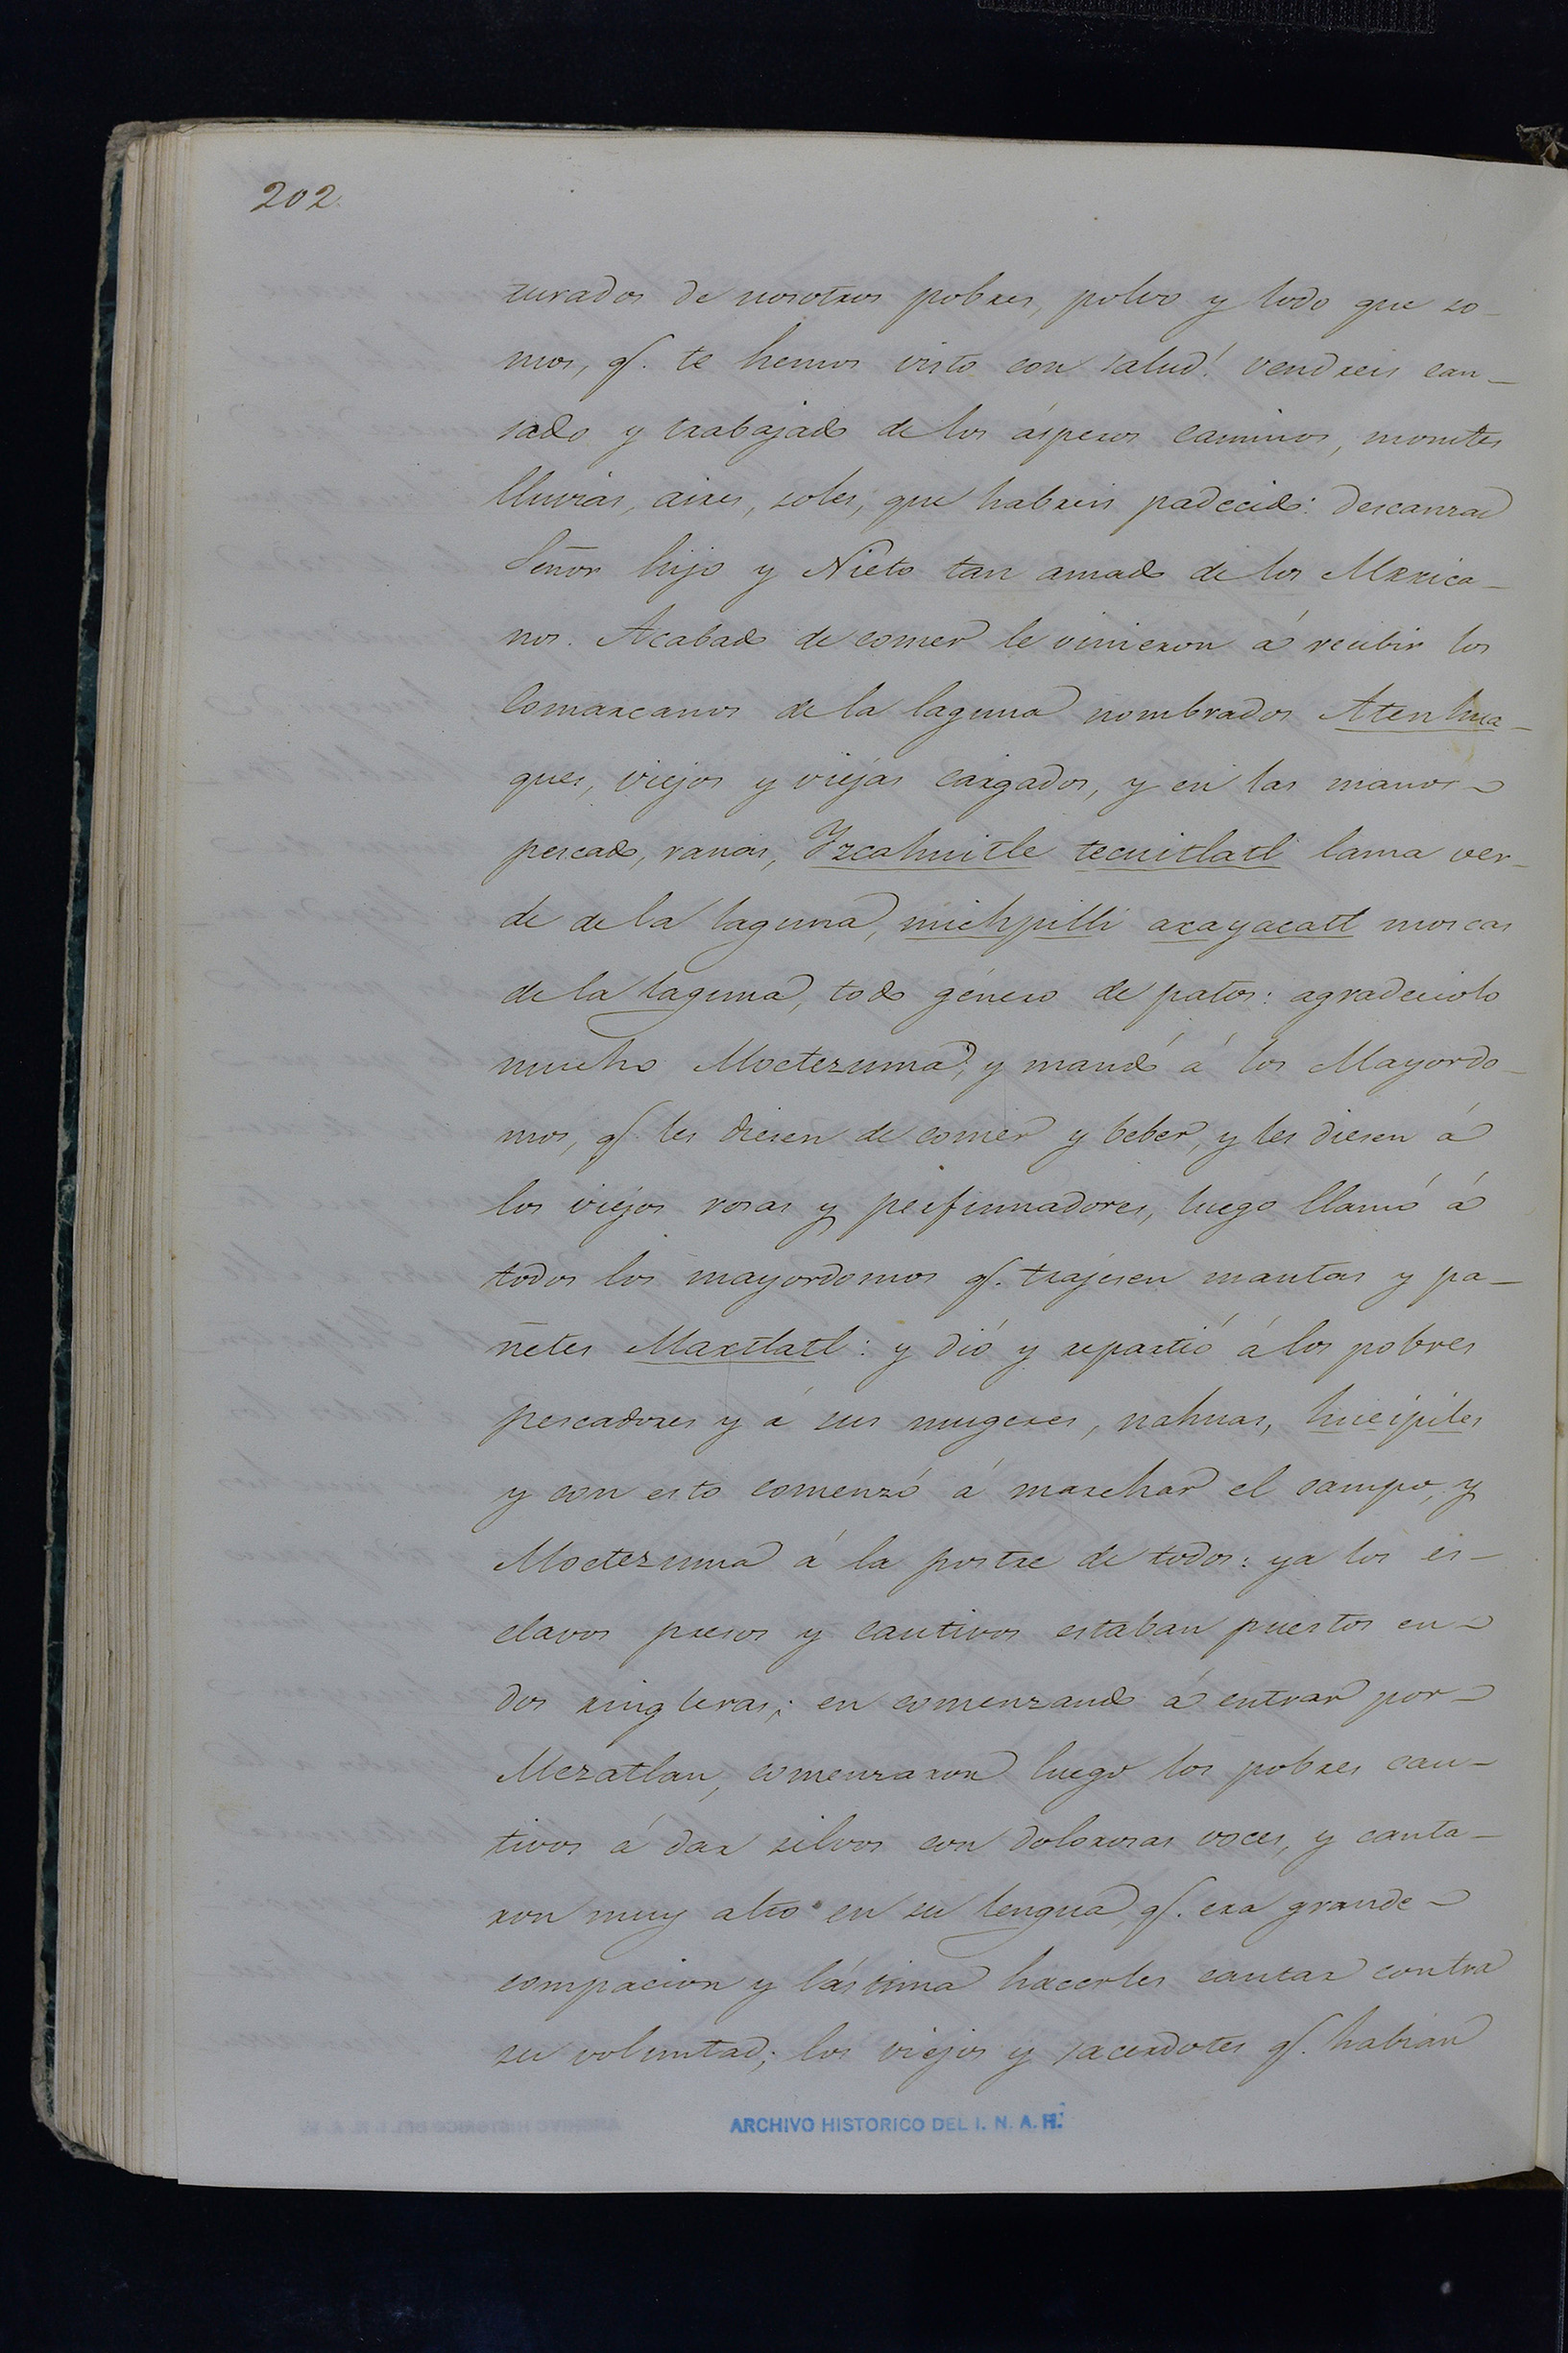 202.
turados de nosotros pobres, polvo y lodo que so-
mos, q̃. te hemos visto con salud! vendreis can-
sado y trabajado de los ásperos caminos, montes
lluvias, aires, soles, que habreis padecido: descanzad
Señor hijo y Nieto tan amado de los Mexica-
nos. Acabado de comer le vinieron á recibir los
Comarcanos de la laguna nombrados Atenhua-
ques, viejos y viejas cargados, y en las manos
pescado, ranas, Yzcahuitle tecuitlatl lama ver-
de de la laguna, michpilli axayacatl moscas
de la laguna, todo género de patos: agradeciolo
mucho Moctezuma; y mandó á los Mayordo-
mos, q̃. les diesen de comer y beber, y les diesen á
los viejos rosas y perfumadores, luego llamó á
todos los mayordomos q̃. trajesen mantas y pa-
ñetes Maxtlatl: y dió y repartió á los pobres
pescadores y á sus mugeres, nahuas, hueipiles
y con esto comenzó á marchar el campo, y
Moctezuma á la postre de todos: ya los es-
clavos presos y cautivos estaban puestos en
dos ringleras; en comenzando á entrar por
Mezatlan, comenzaron luego los pobres cau-
tivos á dar silvos con dolorosas voces, y canta-
ron muy alto en su lengua, q̃. era grande
compacion y lástima hacerles cantar contra
su voluntad; los viejos y sacerdotes q̃. habian
ARCHIVO HISTORICO DEL I. N. A. H.